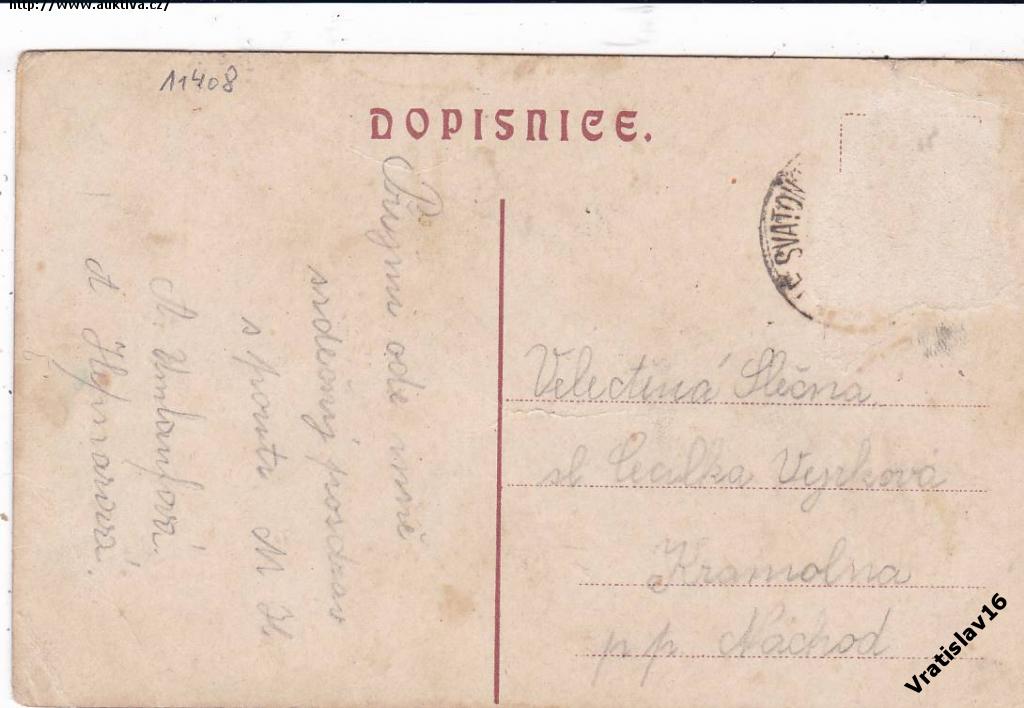 http://www.auktiva.cz/
11408
DOPISNICE.
SVATOŇ
Přijmi ode mně
srdečný pozdrav
s pouti M H
A
A
Velectěná Slečna
sl Cecilka Vejrková
Kramolna
p. p. Náchod
Vratislav16